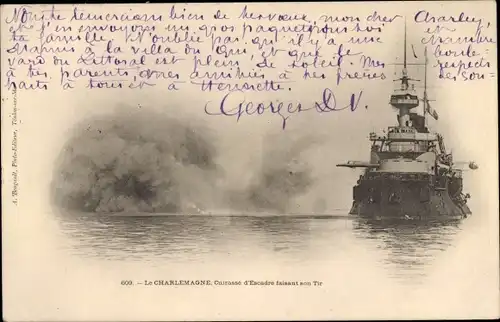 Nous te remercions bien de nerveux, mon cher Charley,
et t'en envoyons un gros paquet pour toi
ta famille. N'oublie pas qu'il y a une chambre
à la villa du et que le boule-
vard du Littoral est plein de soleil. Mes respects
à tes parents, mes amitiés à tes frères de son-
haits à tous et à Henriette.
Georges D.V.
A. Bougault, Photo-Editeur, Toulon
609. — Le CHARLEMAGNE, Cuirassé d'Escadre faisant son Tir